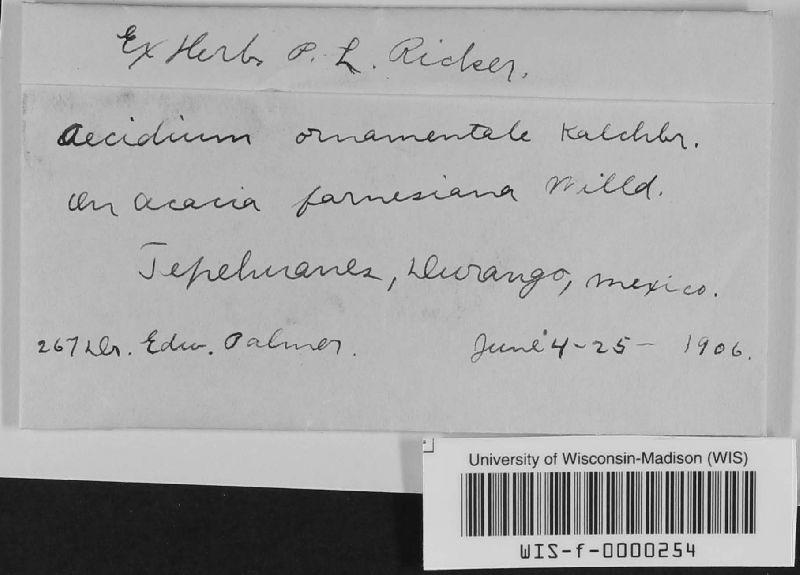 Ex Herb. P. L. Ricker.
Aecidium ornamentale Kalchbr.
On Acacia farnesiana Willd.
Tepehuanes, Durango, Mexico.
267 Dr. Edw. Palmer. June 4-25- 1906.
University of Wisconsin-Madison (WIS)
WIS-f-0000254